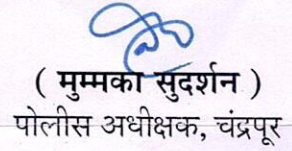 ( मुम्मका सुदर्शन )
पोलीस अधीक्षक, चंद्रपूर